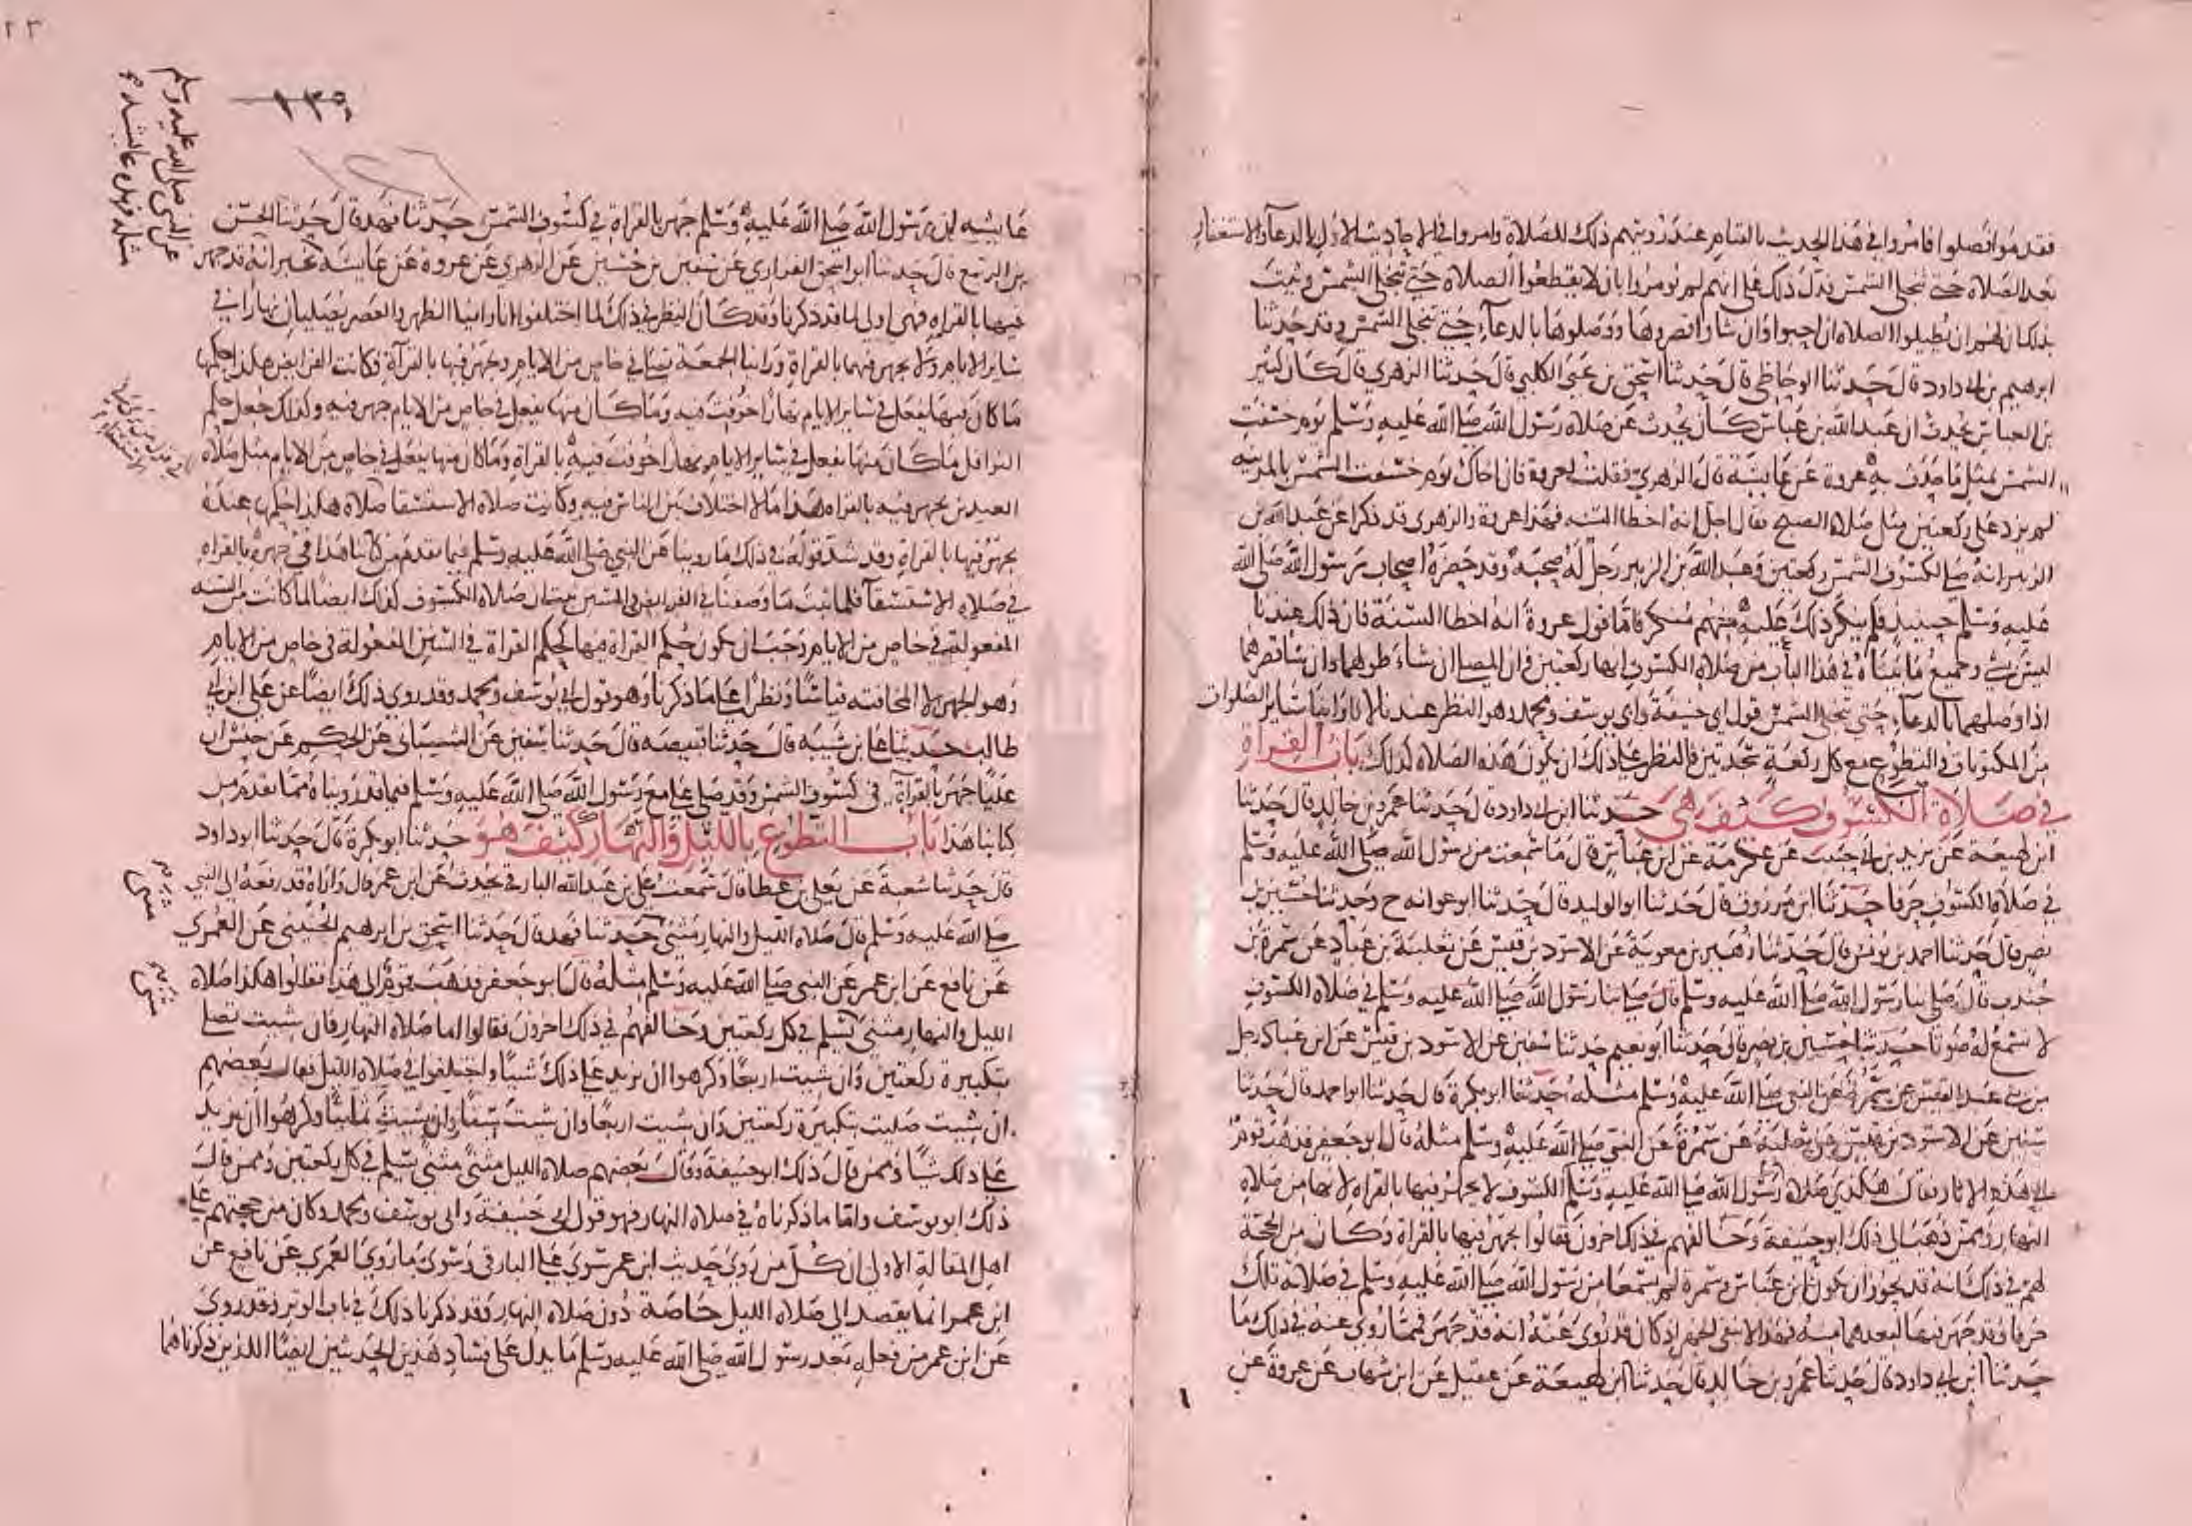 فقوموا فصلوا فامروا في هذا الحديث بالقيام عند رؤيتهم ذلك للصلاة وامروا في الاحاديث الاول بالدعاء والاستغفار
بعد الصلاة حتى تنجلي الشمس فدل ذلك على انهم لم يؤمروا بان لا يقطعوا الصلاة حتى تنجلي الشمس وثبت
بذلك ان لهم ان يطيلوا الصلاة ان احبوا وان شاوا قصروها ووصلوها بالدعاء حتى تنجلي الشمس وقد حدثنا
ابرهيم بن ابي داود قال حدثنا الوحاظي قال حدثنا اسحق بن يحيى الكلبي قال حدثنا الزهري قال كان كثير
بن العباس يحدث ان عبد الله بن عباس كان يحدث عن صلاة رسول الله صلى الله عليه وسلم يوم خسفت
الشمس بمثل ما حدث به عروة عن عايشة قال الزهري فقلت لعروة فان اخاك يوم خسفت الشمس بالمدينة
لم يزد على ركعتين مثل صلاة الصبح فقال اجل انه اخطا السنة فهذا عروة والزهري قد ذكرا عن عبد الله بن
الزبير انه صلى لكسوف الشمس ركعتين وعبد الله بن الزبير رجل له صحبة وقد حضره اصحاب رسول الله صلى الله
عليه وسلم حينيذ فلم ينكر ذلك عليه منهم منكر فاما قول عروة انه اخطا السنة فان ذلك عندنا
ليس بشي وجميع ما بيناه في هذا الباب من صلاة الكسوف انها ركعتين وان المصلي ان شاء طولهما وان شا قصرهما
اذا وصلهما بالدعاء حتى تنجلي الشمس قول ابي حنيفة وابي يوسف ومحمد وهو النظر عندنا لانا راينا ساير الصلوات
من المكتوبات والتطوع مع كل ركعة سجدتين فالنظر على ذلك ان يكون هذه الصلاة كذلك باب القراة
في صلاة الكسوف كيف هي حدثنا ابن ابي داود قال حدثنا عمرو بن خالد قال حدثنا
ابن لهيعة عن يزيد بن ابي حبيب عن عكرمة عن ابن عباس قال ما سمعت من رسول الله صلى الله عليه وسلم
في صلاة الكسوف حرفا حدثنا ابن مرزوق قال حدثنا ابو الوليد قال حدثنا ابو عوانه ح وحدثنا حسين بن
نصر قال حدثنا احمد بن يونس قال حدثنا زهير بن معوية عن الاسود بن قيس عن ثعلبة بن عباد عن سمرة بن
جندب قال صلى بنا رسول الله صلى الله عليه وسلم قال صلى بنا رسول الله صلى الله عليه وسلم في صلاة الكسوف
لا نسمع له صوتا حدثنا حسين بن نصر قال حدثنا ابو نعيم حدثنا سفين عن الاسود بن قيس عن ابن عباد رجل
من بني عبد القيس عن سمرة عن النبي صلى الله عليه وسلم مثله حدثنا ابو بكرة قال حدثنا ابو احمد قال حدثنا
سفين عن الاسود بن قيس عن ثعلبة عن سمرة عن النبي صلى الله عليه وسلم مثله قال ابو جعفر فذهب قوم
الى هذه الاثار فقال هكذى صلاة رسول الله صلى الله عليه وسلم الكسوف لا يجهر فيها بالقراه لانها من صلاة
النهار وممن ذهب الى ذلك ابو حنيفة وخالفهم في ذلك اخرون فقالوا يجهر فيها بالقراة وكان من الحجة
لهم في ذلك انه قد يجوز ان يكون ابن عباس وسمرة لم يسمعا من رسول الله صلى الله عليه وسلم في صلاته تلك
حرفا وقد جهر فيها لبعدهما منه فهذا لا ينفي الجهر اذ كان قد روي عنه انه قد جهر فمما روي عنه في ذلك ما
حدثنا ابن ابي داود قال حدثنا عمرو بن خالد قال حدثنا ابن لهيعة عن عقيل عن ابن شهاب عن عروة عن
١٣٥
عن النبي صلى الله عليه وسلم
عايشة ان رسول الله صلى الله عليه وسلم جهر بالقراة في كسوف الشمس حدثنا فهد قال حدثنا الحسن
بن الربيع قال حدثنا ابو اسحق الفزاري عن سفين بن حسين عن الزهري عن عروة عن عايشة تخبر انه قد جهر
فيها بالقراه فهي اولى لما قد ذكرنا وقد كان النظر في ذلك لما اختلفوا انا راينا الظهر والعصر يصليان نهارا في
ساير الايام ولا يجهر فيهما بالقراة وراينا الجمعة تصلى في خاص من الايام ويجهر فيها بالقرآة فكانت الفرايض هكذا حكمها
ما كان منها يفعل في ساير الايام نهارا خوفت فيه وما كان منها يفعل في خاص من الايام جهر فيه وكذلك جعل حكم
النوافل ما كان منها يفعل في ساير الايام نهارا خوفت فيه بالقراة وما كان منها يفعل في خاص من الايام مثل صلاة
العيدين يجهر فيه بالقراه هذا ما لا اختلاف بين الناس فيه وكانت صلاة الاستسقا صلاة هكذا حكمها عنده
يجهر فيها بالقراة وقد شد قوله في ذلك ما روينا عن النبي صلى الله عليه وسلم فيما تقدم من كتابنا هذا في جهره بالقراه
في صلاة الاستسقآ فلما ثبت ما وصفنا في الفرايض والسنن ثبت ان صلاة الكسوف كذلك ايضا لما كانت من السنة
المفعولة في خاص من الايام وجب ان يكون حكم القراة فيها كحكم القراة في السنن المفعولة في خاص من الايام
وهو الجهر لا المخافته قياسا ونظرا على ما ذكرنا وهو قول ابي يوسف ومحمد وقد روي ذلك ايضا عن علي ابن ابي
طالب حدثنا علي بن شيبة قال حدثنا قبيصه قال حدثنا سفين عن الشيباني عن الحكم عن حنش ان
عليا جهر بالقراة في كسوف الشمس وقد صلى علي مع رسول الله صلى الله عليه وسلم فيما قد رويناه مما تقدم من
كتابنا هذا باب التطوع بالليل والنهار كيف هو حدثنا ابو بكرة قال حدثنا ابو داود
قال حدثنا شعبة عن يعلى بن عطا قال سمعت علي بن عبد الله البارقي يحدث عن ابن عمر قال واراه قد رفعه الى النبي
صلى الله عليه وسلم قال صلاة الليل والنهار مثنى حدثنا فهد قال حدثنا اسحق بن ابرهيم الحنيني عن العمري
عن نافع عن ابن عمر عن النبي صلى الله عليه وسلم مثله قال ابو جعفر فذهب قوم الى هذا فقالوا هكذا صلاة
الليل والنهار مثنى يسلم في كل ركعتين وخالفهم في ذلك اخرون فقالوا اما صلاة النهار فان شيت تصلي
بتكبيرة ركعتين وان شيت اربعا وكرهوا ان يزيد على ذلك شيا واختلفوا في صلاة الليل فقال بعضهم
ان شيت صليت بتكبيرة ركعتين وان شيت اربعا وان شيت ستا وان شيت ثمانيا وكرهوا ان يزيد
على ذلك شيا وممن قال ذلك ابو حنيفة وقال بعضهم صلاة الليل مثنى مثنى يسلم في كل ركعتين وممن قال
ذلك ابو يوسف واما ما ذكرناه في صلاة النهار فهو قول ابي حنيفة وابي يوسف ومحمد وكان من حجتهم على
اهل المقالة الاولى ان كل من روى حديث ابن عمر سوى علي البارقي وسوى ما روى العمري عن نافع عن
ابن عمر انما يقصد الى صلاة الليل خاصة دون صلاة النهار وقد ذكرنا ذلك في باب الوتر وقد روي
عن ابن عمر من فعله بعد رسول الله صلى الله عليه وسلم ما يدل على فساد هذين الحديثين ايضا اللذين ذكرناهما